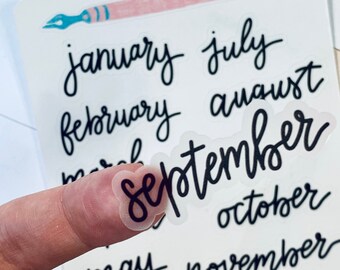 january july
february august
march september
october
may november